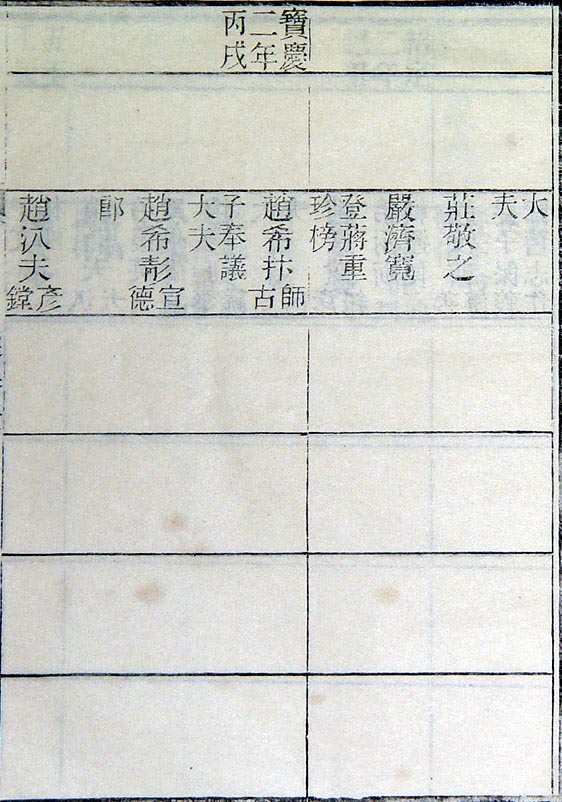 寶慶
二年
丙戌
大
夫
莊敬之
嚴濟寬
登蔣重
珍榜
趙希抃師
古
子奉議
大夫
趙希宣
德
郎
趙汃夫彥
鏜